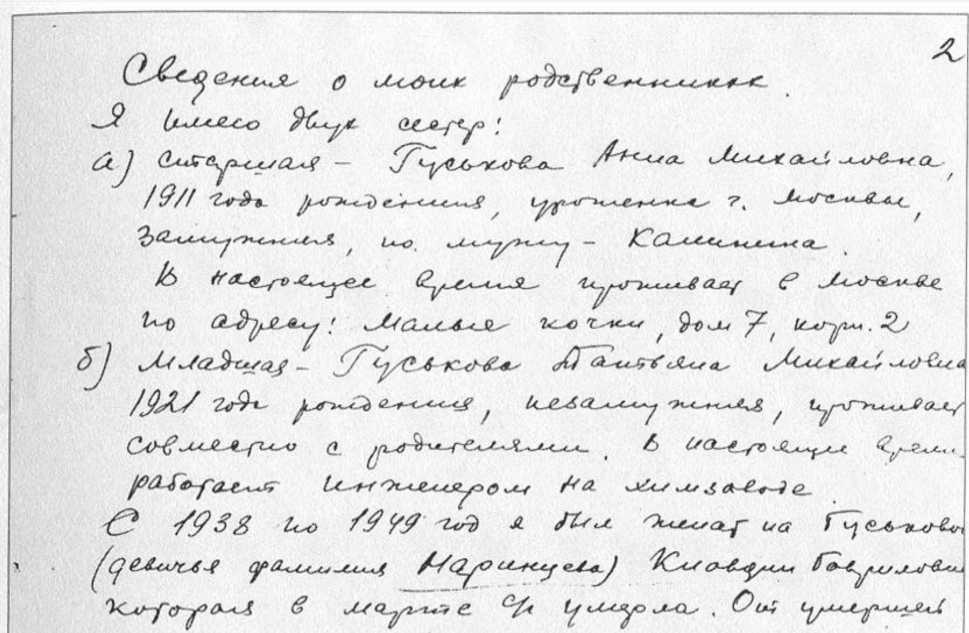 2
Сведения о моих родственниках.
Я имею двух сестер:
а) старшая – Гуськова Анна Михайловна,
1911 года рождения, уроженка г. Москвы,
замужняя, по мужу – Калинина.
В настоящее время проживает в Москве
по адресу: Малые кочки, дом 7, корп. 2
б) младшая – Гуськова Татьяна Михайловна
1921 года рождения, незамужняя, проживает
совместно с родителями. В настоящее время
работает инженером на химзаводе
С 1938 по 1949 год я был женат на Гуськовой
(девичья фамилия Наринцева) Клавдии Гавриловне
которая в марте умерла. От умершей